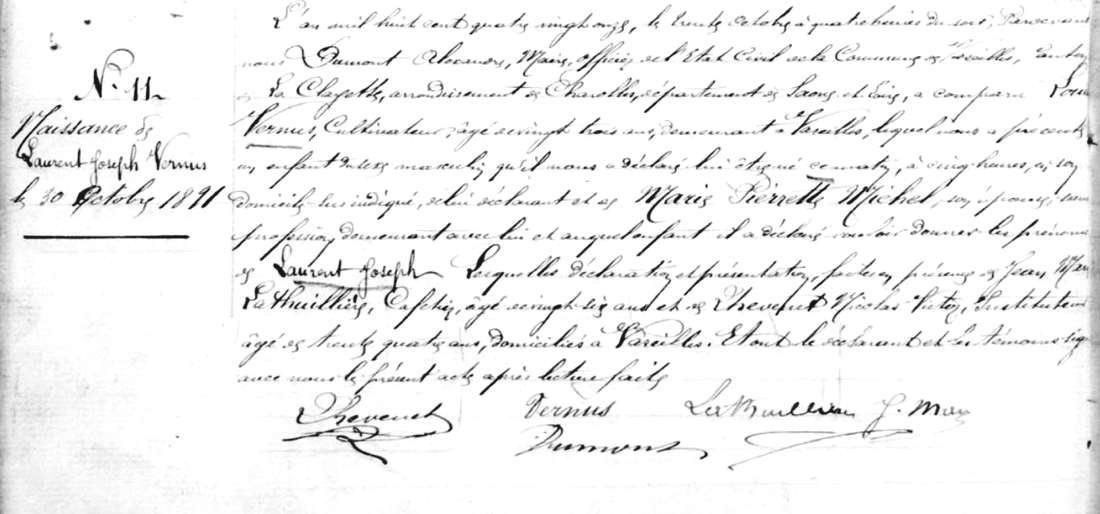 N° 11
Naissance de
Laurent Joseph Vernus
le 30 Octobre 1891
L'an mil huit cent quatre vingt onze, le trente octobre à quatre heures du soir, Pardevant
nous Dumont Alexandre, Maire, officier de l'Etat Civil de la Commune de Vareilles, canton
de La Clayette, arrondissement de Charolles, département de Saône et Loire, a comparu Louis
Vernus, Cultivateur, âgé de vingt trois ans, demeurant à Vareilles, lequel nous a présenté
un enfant du sexe masculin qu'il nous a déclaré lui être né ce matin, à cinq heures, en son
domicile sus indiqué, de lui déclarant et de Marie Pierrette Michel, son épouse, sans
profession, demeurant avec lui et auquel enfant il a déclaré vouloir donner les prénoms
de Laurent Joseph Lesquelles déclaration et présentation, faites en présence de Jean Marie
Lathuillière, Cafetier, âgé de vingt six ans et de Thevenet Nicolas Victor, Instituteur
âgé de trente quatre ans, domiciliés à Vareilles. Et ont le déclarant et les témoins signé
avec nous le présent acte après lecture faite
Thevenet Vernus Lathuillière J. Mar
Dumont